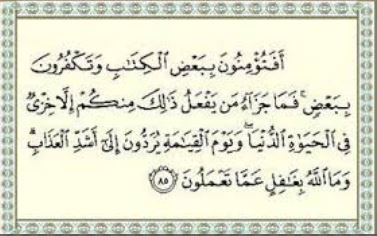 أَفَتُؤْمِنُونَ بِبَعْضِ ٱلْكِتَٰبِ وَتَكْفُرُونَ
بِبَعْضٍۢ ۚ فَمَا جَزَآءُ مَن يَفْعَلُ ذَٰلِكَ مِنكُمْ إِلَّا خِزْىٌۭ
فِى ٱلْحَيَوٰةِ ٱلدُّنْيَا ۖ وَيَوْمَ ٱلْقِيَٰمَةِ يُرَدُّونَ إِلَىٰٓ أَشَدِّ ٱلْعَذَابِ ۗ
وَمَا ٱللَّهُ بِغَٰفِلٍ عَمَّا تَعْمَلُونَ ٨٥